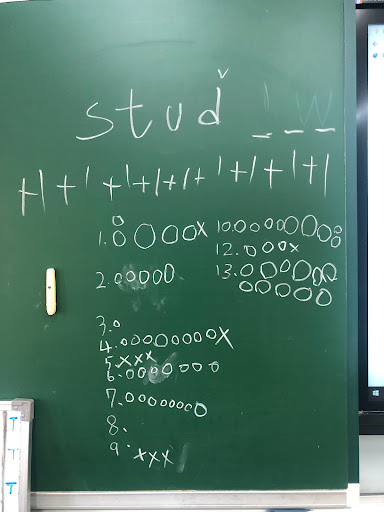 stud _ _ _
+1 +1 +1 +1 +1 +1 +1 +1 +1 +1
1. o o o o o x
2. o o o o o
3. o
4. o o o o o o o o x
5. x x x
6. o o o o o o o
7. o o o o o o o o
8.
9. x x x
10. o o o o o o o o o o
12. o o o x
13. o o o o o o
o o o o o
T
T
T